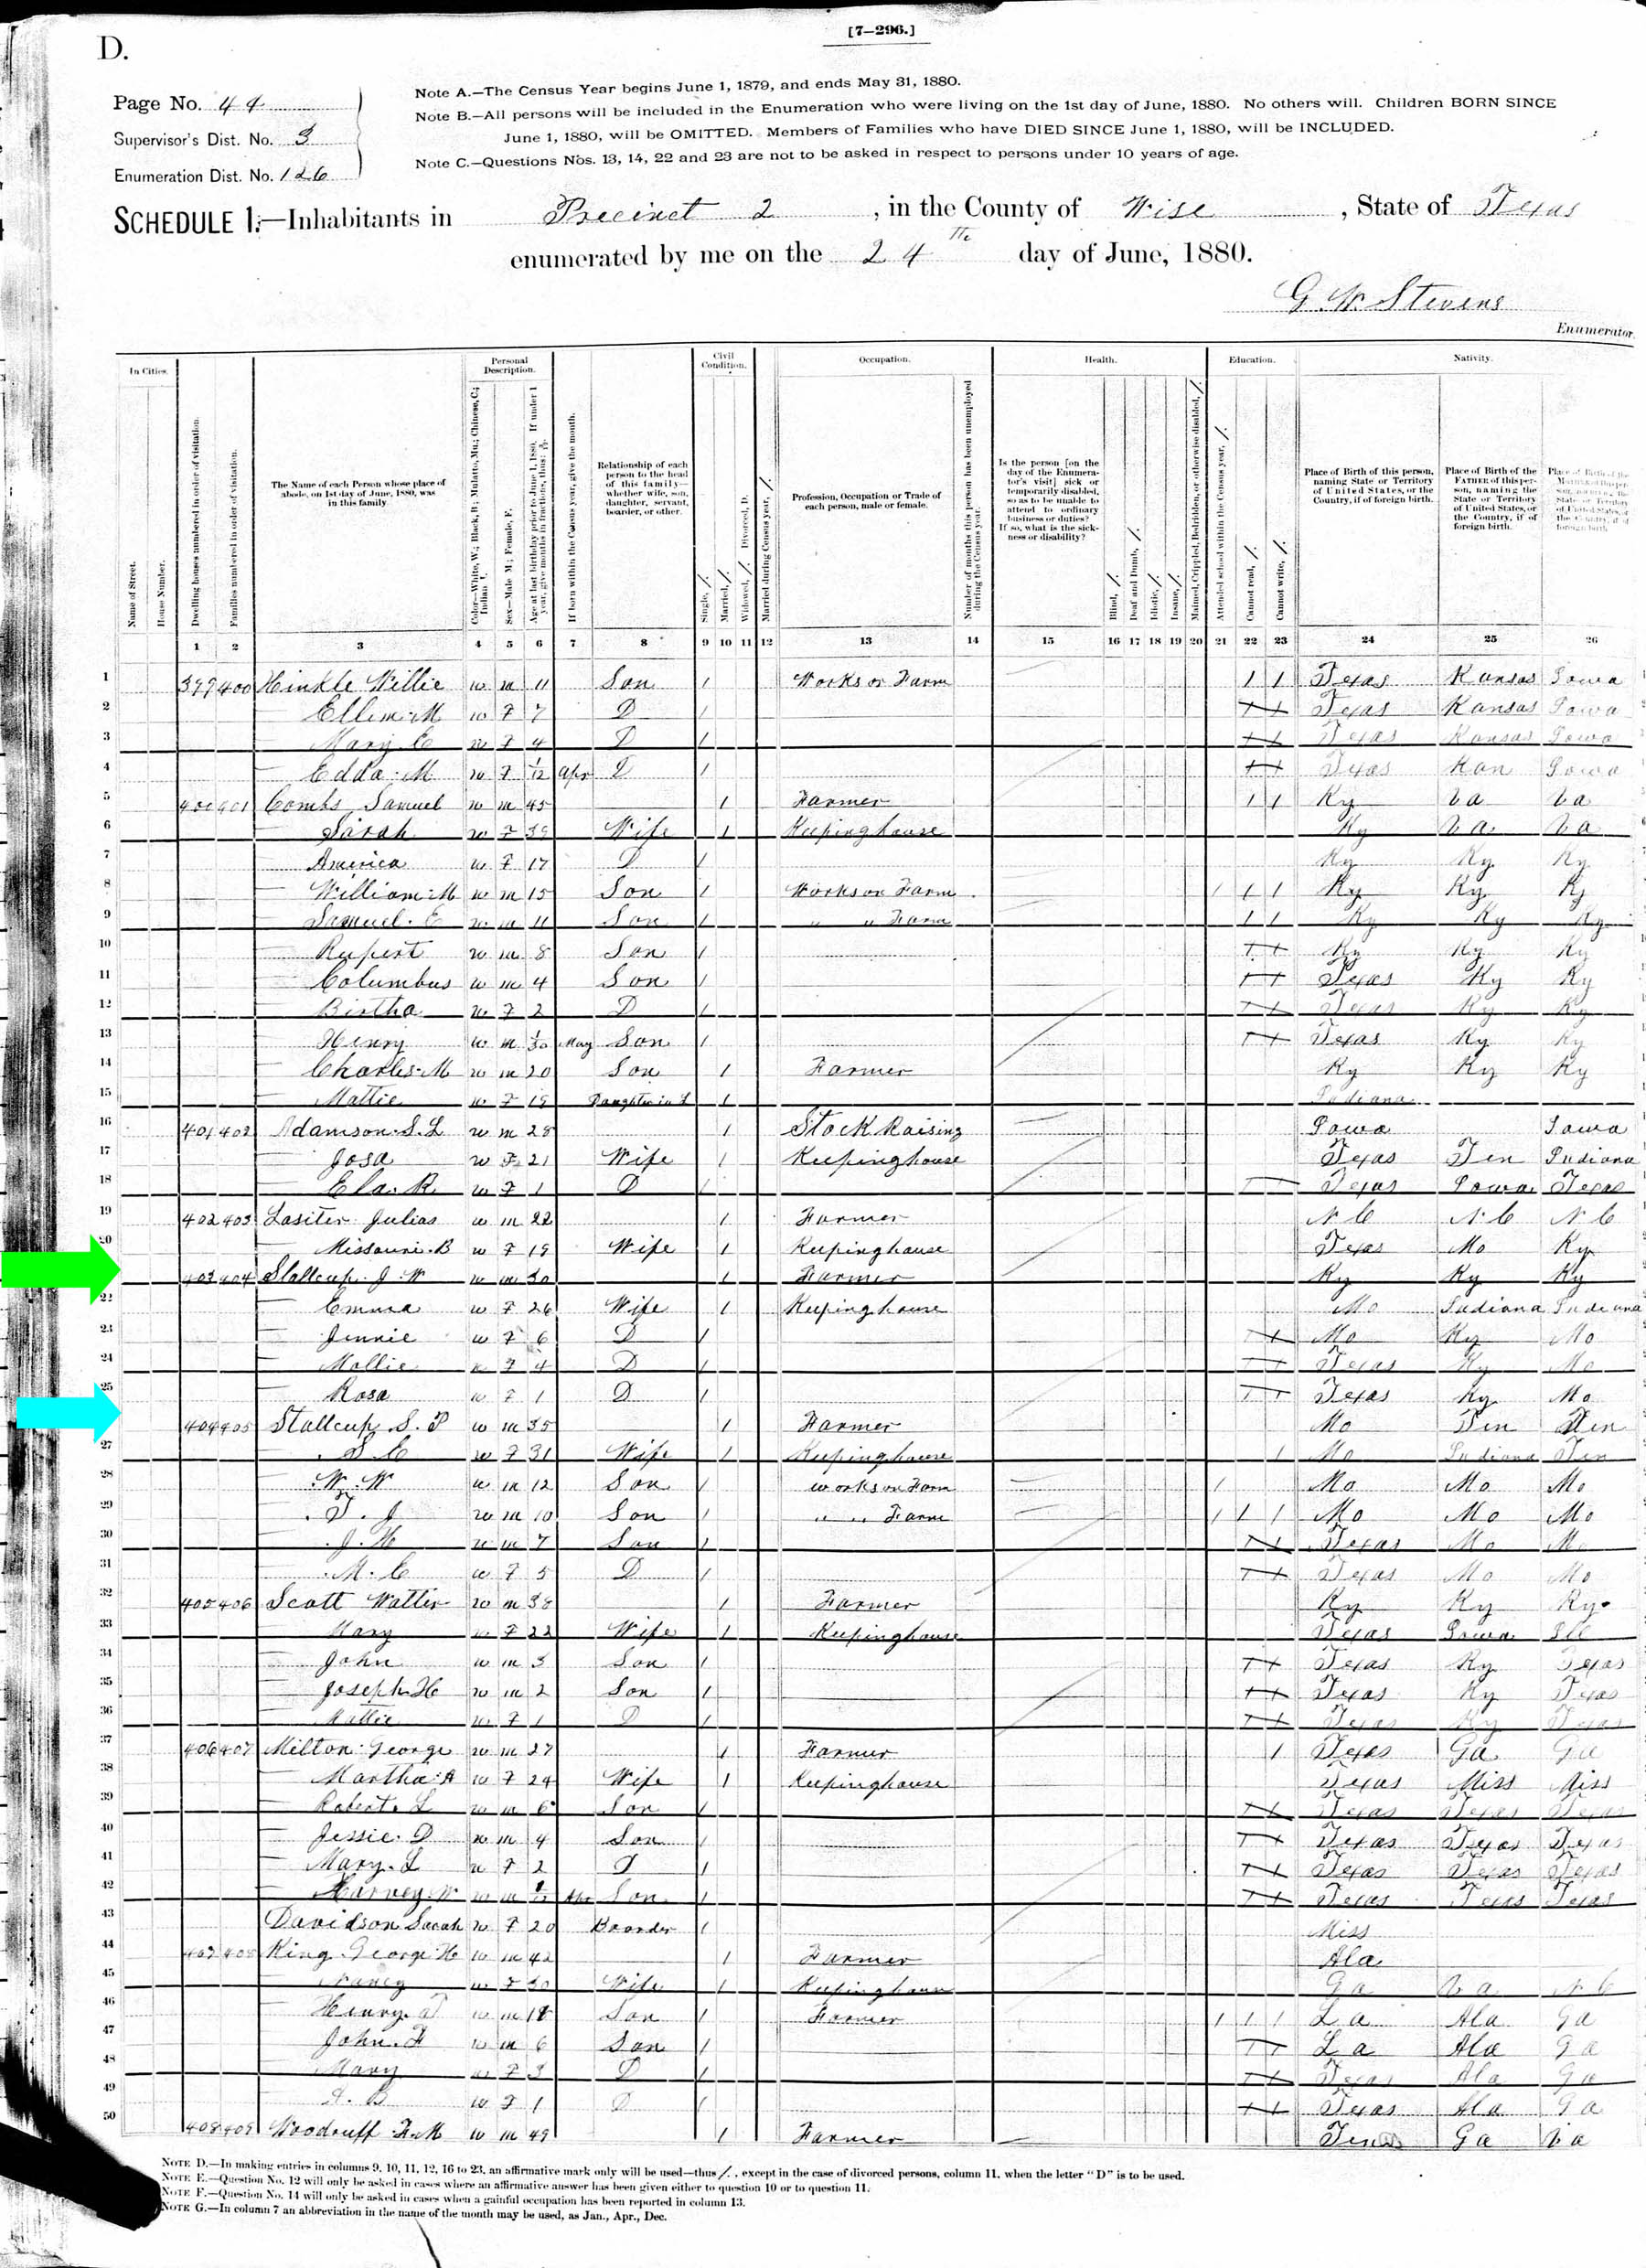 [7-296.]
D.
Page No. 44
Supervisor's Dist. No. 3
Enumeration Dist. No. 126
Note A.—The Census Year begins June 1, 1879, and ends May 31, 1880.
Note B.—All persons will be included in the Enumeration who were living on the 1st day of June, 1880. No others will. Children BORN SINCE
June 1, 1880, will be OMITTED. Members of Families who have DIED SINCE June 1, 1880, will be INCLUDED.
Note C.—Questions Nos. 13, 14, 22 and 23 are not to be asked in respect to persons under 10 years of age.
SCHEDULE 1.—Inhabitants in Precinct 2, in the County of Wise, State of Texas
enumerated by me on the 24th day of June, 1880.
G. W. Stevens
Enumerator.
In Cities. Personal Description. Civil Condition. Occupation. Health. Education. Nativity.
Name of Street.
House Number.
Dwelling houses numbered in order of visitation.
Families numbered in order of visitation.
The Name of each Person whose place of abode, on 1st day of June, 1880, was in this family.
Color—White, W.; Black, B.; Mulatto, Mu.; Chinese, C.; Indian I.
Sex—Male M.; Female, F.
Age at last birthday prior to June 1, 1880. If under 1 year, give months in fractions, thus:
If born within the Census year, give the month.
Relationship of each person to the head of this family—whether wife, son, daughter, servant, boarder, or other.
Single, /.
Married, /.
Widowed, /. Divorced, D.
Married during Census year, /.
Profession, Occupation or Trade of each person, male or female.
Number of months this person has been unemployed during the Census year.
Is the person [on the day of the Enumerator's visit] sick or temporarily disabled, so as to be unable to attend to ordinary business or duties? If so, what is the sickness or disability?
Blind, /.
Deaf and Dumb, /.
Idiotic, /.
Insane, /.
Maimed, Crippled, Bedridden, or otherwise disabled, /.
Attended school within the Census year, /.
Cannot read, /.
Cannot write, /.
Place of Birth of this person, naming State or Territory of United States, or the Country, if of foreign birth.
Place of Birth of the FATHER of this person, naming the State or Territory of United States, or the Country, if of foreign birth.
1 2 3 4 5 6 7 8 9 10 11 12 13 14 15 16 17 18 19 20 21 22 23 24 25 26
1 399 400 Hinkle Willie w m 11 Son / Works on Farm / / Texas Kansas Iowa
2 Ellen M w F 7 D / Texas Kansas Iowa
3 Mary E w F 4 D / Texas Kansas Iowa
4 Edda M w F 1/12 Apr D / Texas Kan Iowa
5 400 401 Combs Samuel w m 45 / Farmer / / Ky Va Va
6 Sarah w F 39 Wife / Keeping house Ky Va Va
7 America w F 17 D / Ky Ky Ky
8 William M w m 15 Son / Works on Farm / / / Ky Ky Ky
9 Samuel E w m 11 Son / " " Farm / / Ky Ky Ky
10 Rupert w m 8 Son / Ky Ky Ky
11 Columbus w m 4 Son / Texas Ky Ky
12 Birtha w F 2 D / Texas Ky Ky
13 Henry w m 1/30 May Son / Texas Ky Ky
14 Charles M w m 20 Son / Farmer Ky Ky Ky
15 Mattie w F 19 Daughter in L / Indiana
16 401 402 Adamson S. L w m 28 / Stock Raising Iowa Iowa
17 Josa w F 21 Wife / Keeping house Texas Ten Indiana
18 Ela. R w F 1 D / Texas Iowa Texas
19 402 403 Lasiter Julias w m 22 / Farmer N C N C N C
20 Missouri B w F 19 Wife / Keeping house Texas Mo Ky
403 404 Stallcup J. W w m 30 / Farmer Ky Ky Ky
22 Emma w F 26 Wife / Keeping house Mo Indiana Indiana
23 Jennie w F 6 D / Mo Ky Mo
24 Mollie w F 4 D / Texas Ky Mo
25 Rosa w F 1 D / Texas Ky Mo
404 405 Stallcup S. P w m 35 / Farmer Mo Ten Ten
27 S C w F 31 Wife / Keeping house / Mo Indiana Ten
28 W. W w m 12 Son / works on Farm / Mo Mo Mo
29 T. J w m 10 Son / " " Farm / / / Mo Mo Mo
30 J. H w m 7 Son / Texas Mo Mo
31 M. C w F 5 D / Texas Mo Mo
32 405 406 Scott Walter w m 38 / Farmer Ky Ky Ky
33 Mary w F 22 Wife / Keeping house Texas Iowa Ill
34 John w m 3 Son / Texas Ky Texas
35 Joseph H w m 2 Son / Texas Ky Texas
36 Mattie w F 1 D / Texas Ky Texas
37 406 407 Milton George w m 27 / Farmer / Texas Ga Ga
38 Martha A w F 24 Wife / Keeping house Texas Miss Miss
39 Robert L w m 6 Son / Texas Texas Texas
40 Jessie D w m 4 Son / Texas Texas Texas
41 Mary L w F 2 D / Texas Texas Texas
42 Harvey W w m Son / Texas Texas Texas
43 Davidson Sarah w F 20 Boarder / Miss
44 407 408 King George H w m 42 / Farmer Ala
45 Nancy w F 30 Wife / Keeping house Ga Va N C
46 Henry w m 18 Son / Farmer / / / La Ala Ga
47 John F w m 6 Son / La Ala Ga
48 Mary w F 3 D / Texas Ala Ga
49 w F 1 D / Texas Ala Ga
50 408 409 Woodruff F. M w m 49 / Farmer Ga Va
NOTE D.—In making entries in columns 9, 10, 11, 12, 16 to 23, an affirmative mark only will be used—thus /, except in the case of divorced persons, column 11, when the letter "D" is to be used.
NOTE E.—Question No. 12 will only be asked in cases where an affirmative answer has been given either to question 10 or to question 11.
NOTE F.—Question No. 14 will only be asked in cases when a gainful occupation has been reported in column 13.
NOTE G.—In column 7 an abbreviation in the name of the month may be used, as Jan., Apr., Dec.